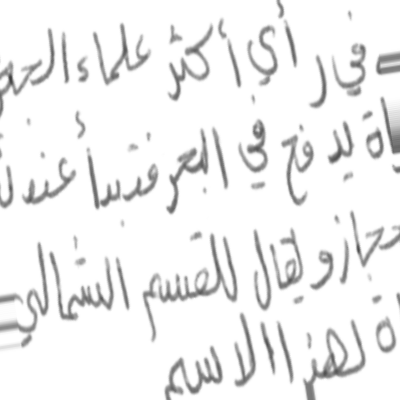 في رأي أكثر علماء الحـ
ـاة يدفع في البحر فتبدأ عند
حجاز ويقال للقسم الشمالي
ـاة لهذا الاسم